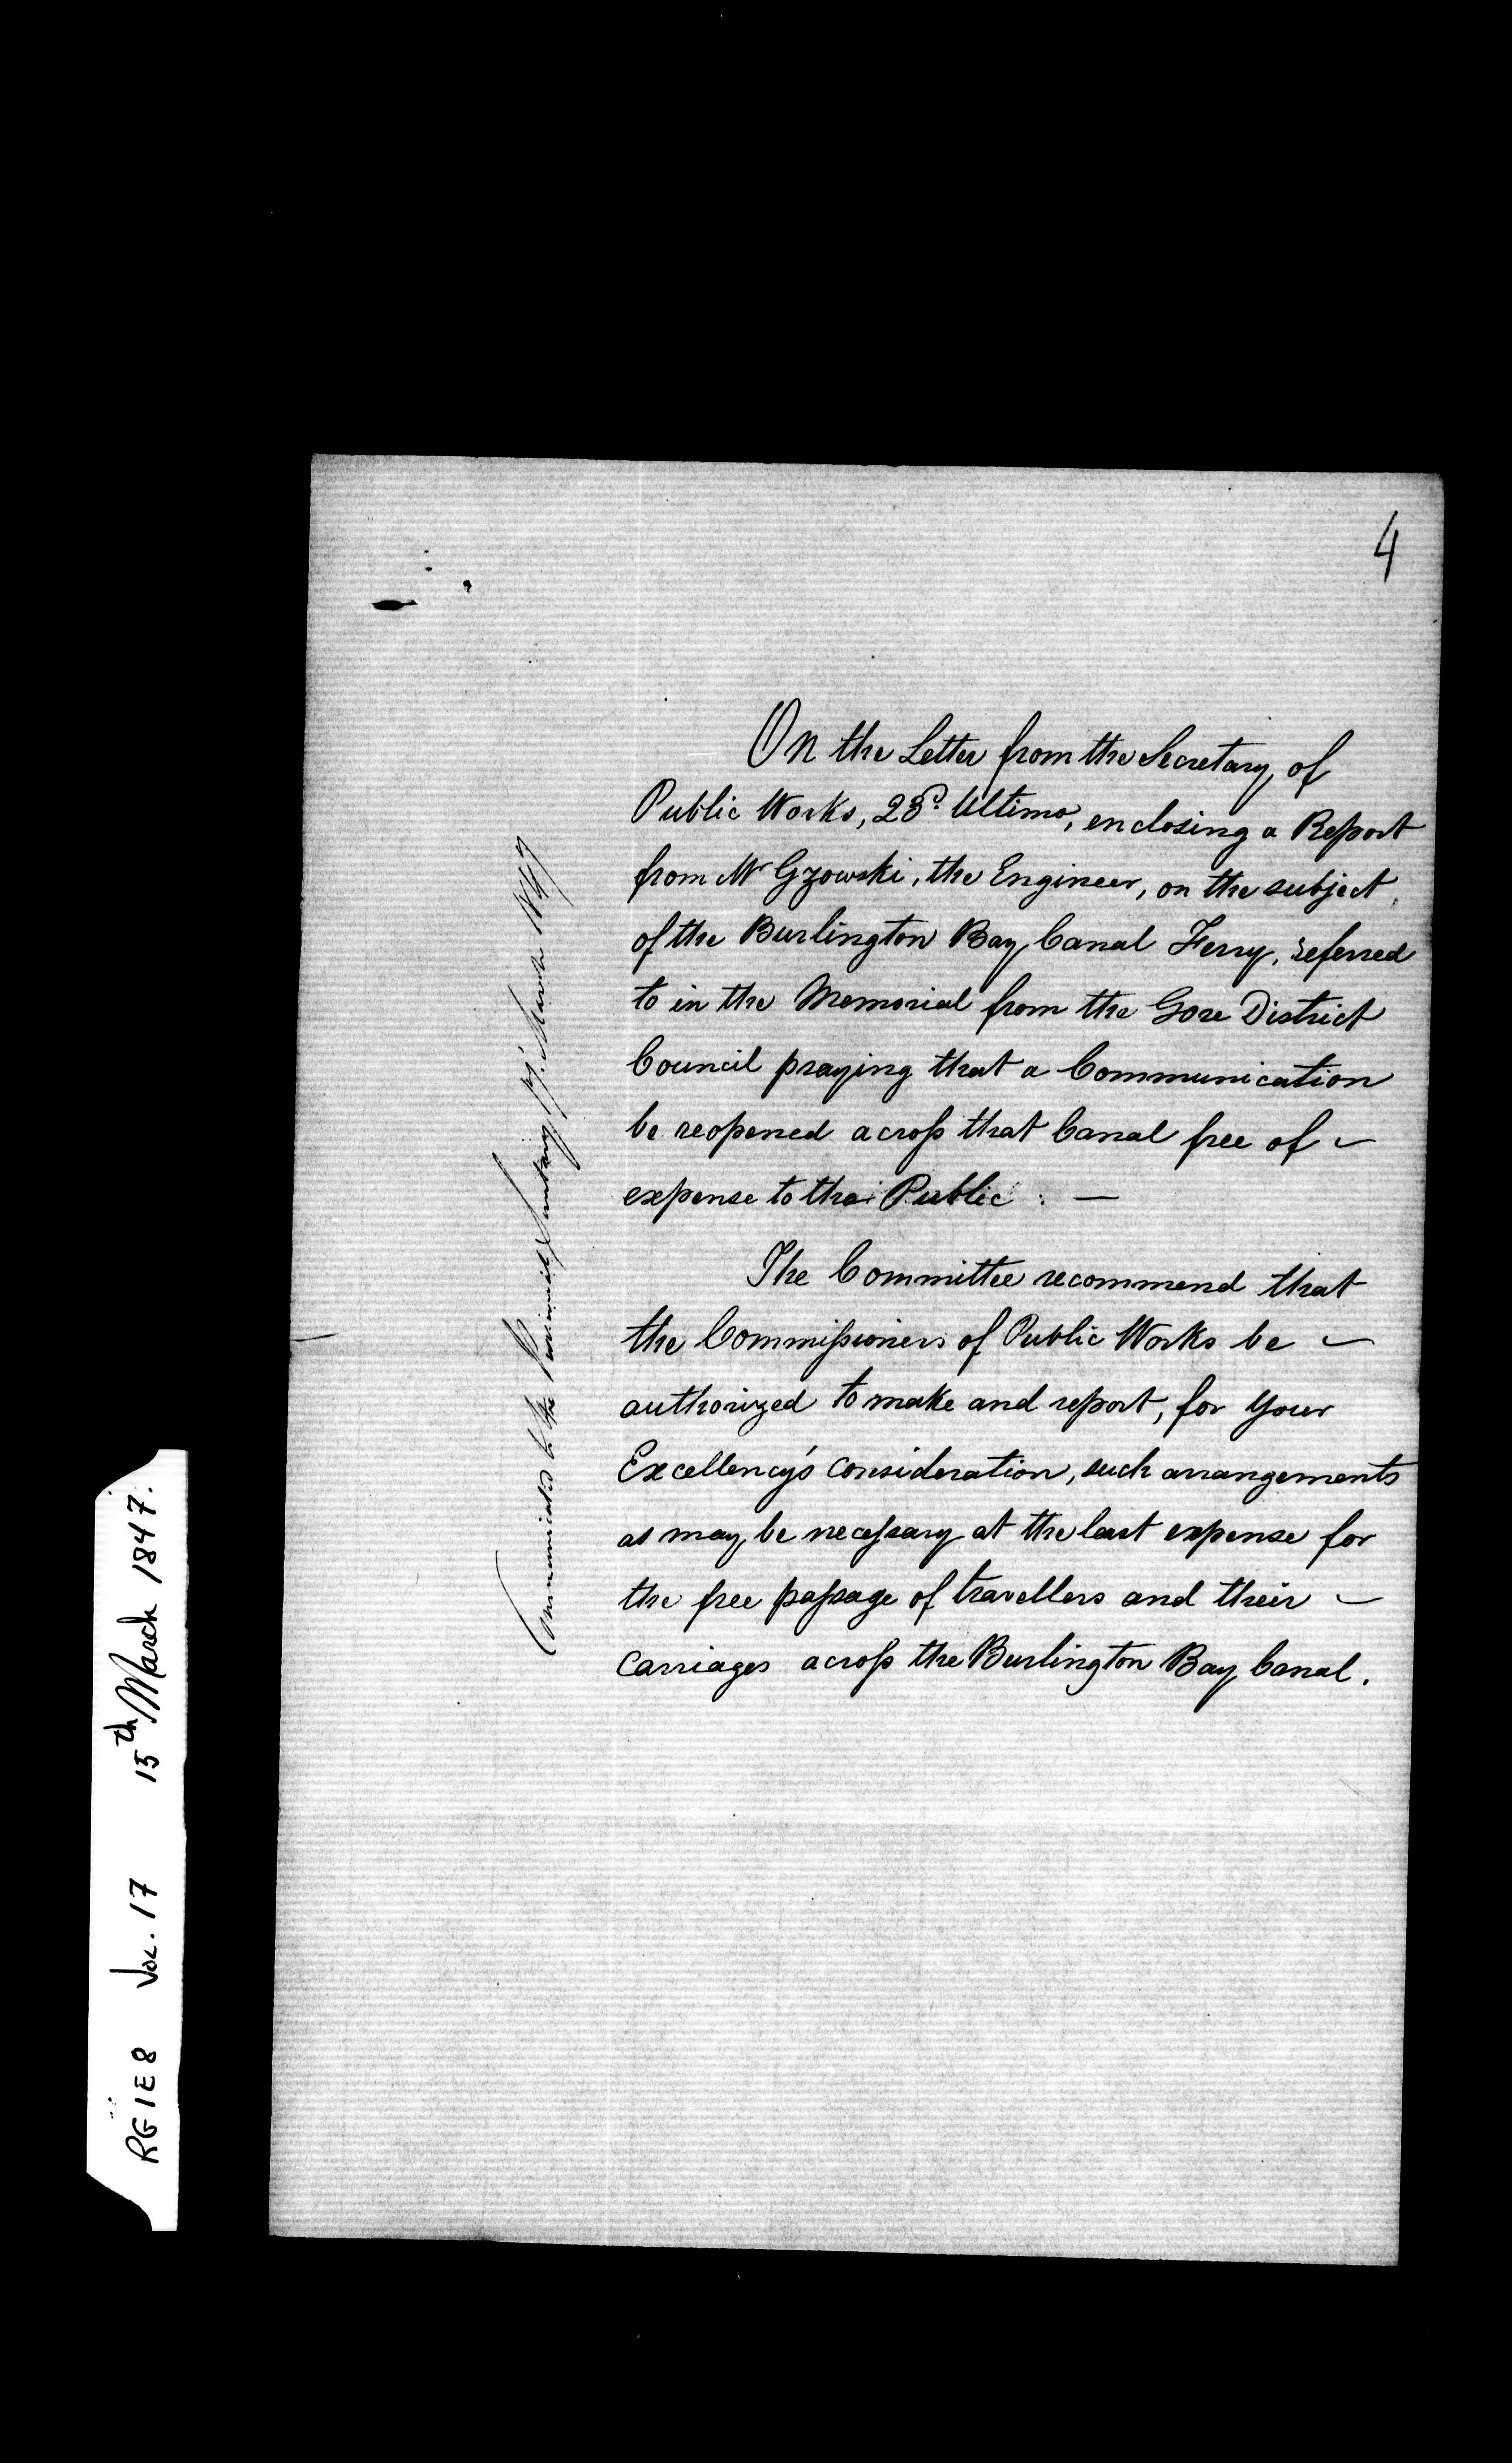 4
On the Letter from the Secretary of
Public Works, 23d. Ultimo, enclosing a Report
from Mr Gzowski, the Engineer, on the subject
of the Burlington Bay Canal Ferry, referred
to in the Memorial from the Gore District
Council praying that a Communication
be reopened acroſs that Canal free of –
expense to the Public : —
The Committee recommend that
the Commiſsioners of Public Works be –
authorized to make and report, for Your
Excellency's consideration, such arrangements
as may be neceſsary at the least expense for
the free paſsage of travellers and their –
carriages acroſs the Burlington Bay Canal.
Communicated to the Provincial Secretary 17. March 1847
RG 1 E 8 Vol. 17 15th March 1847.